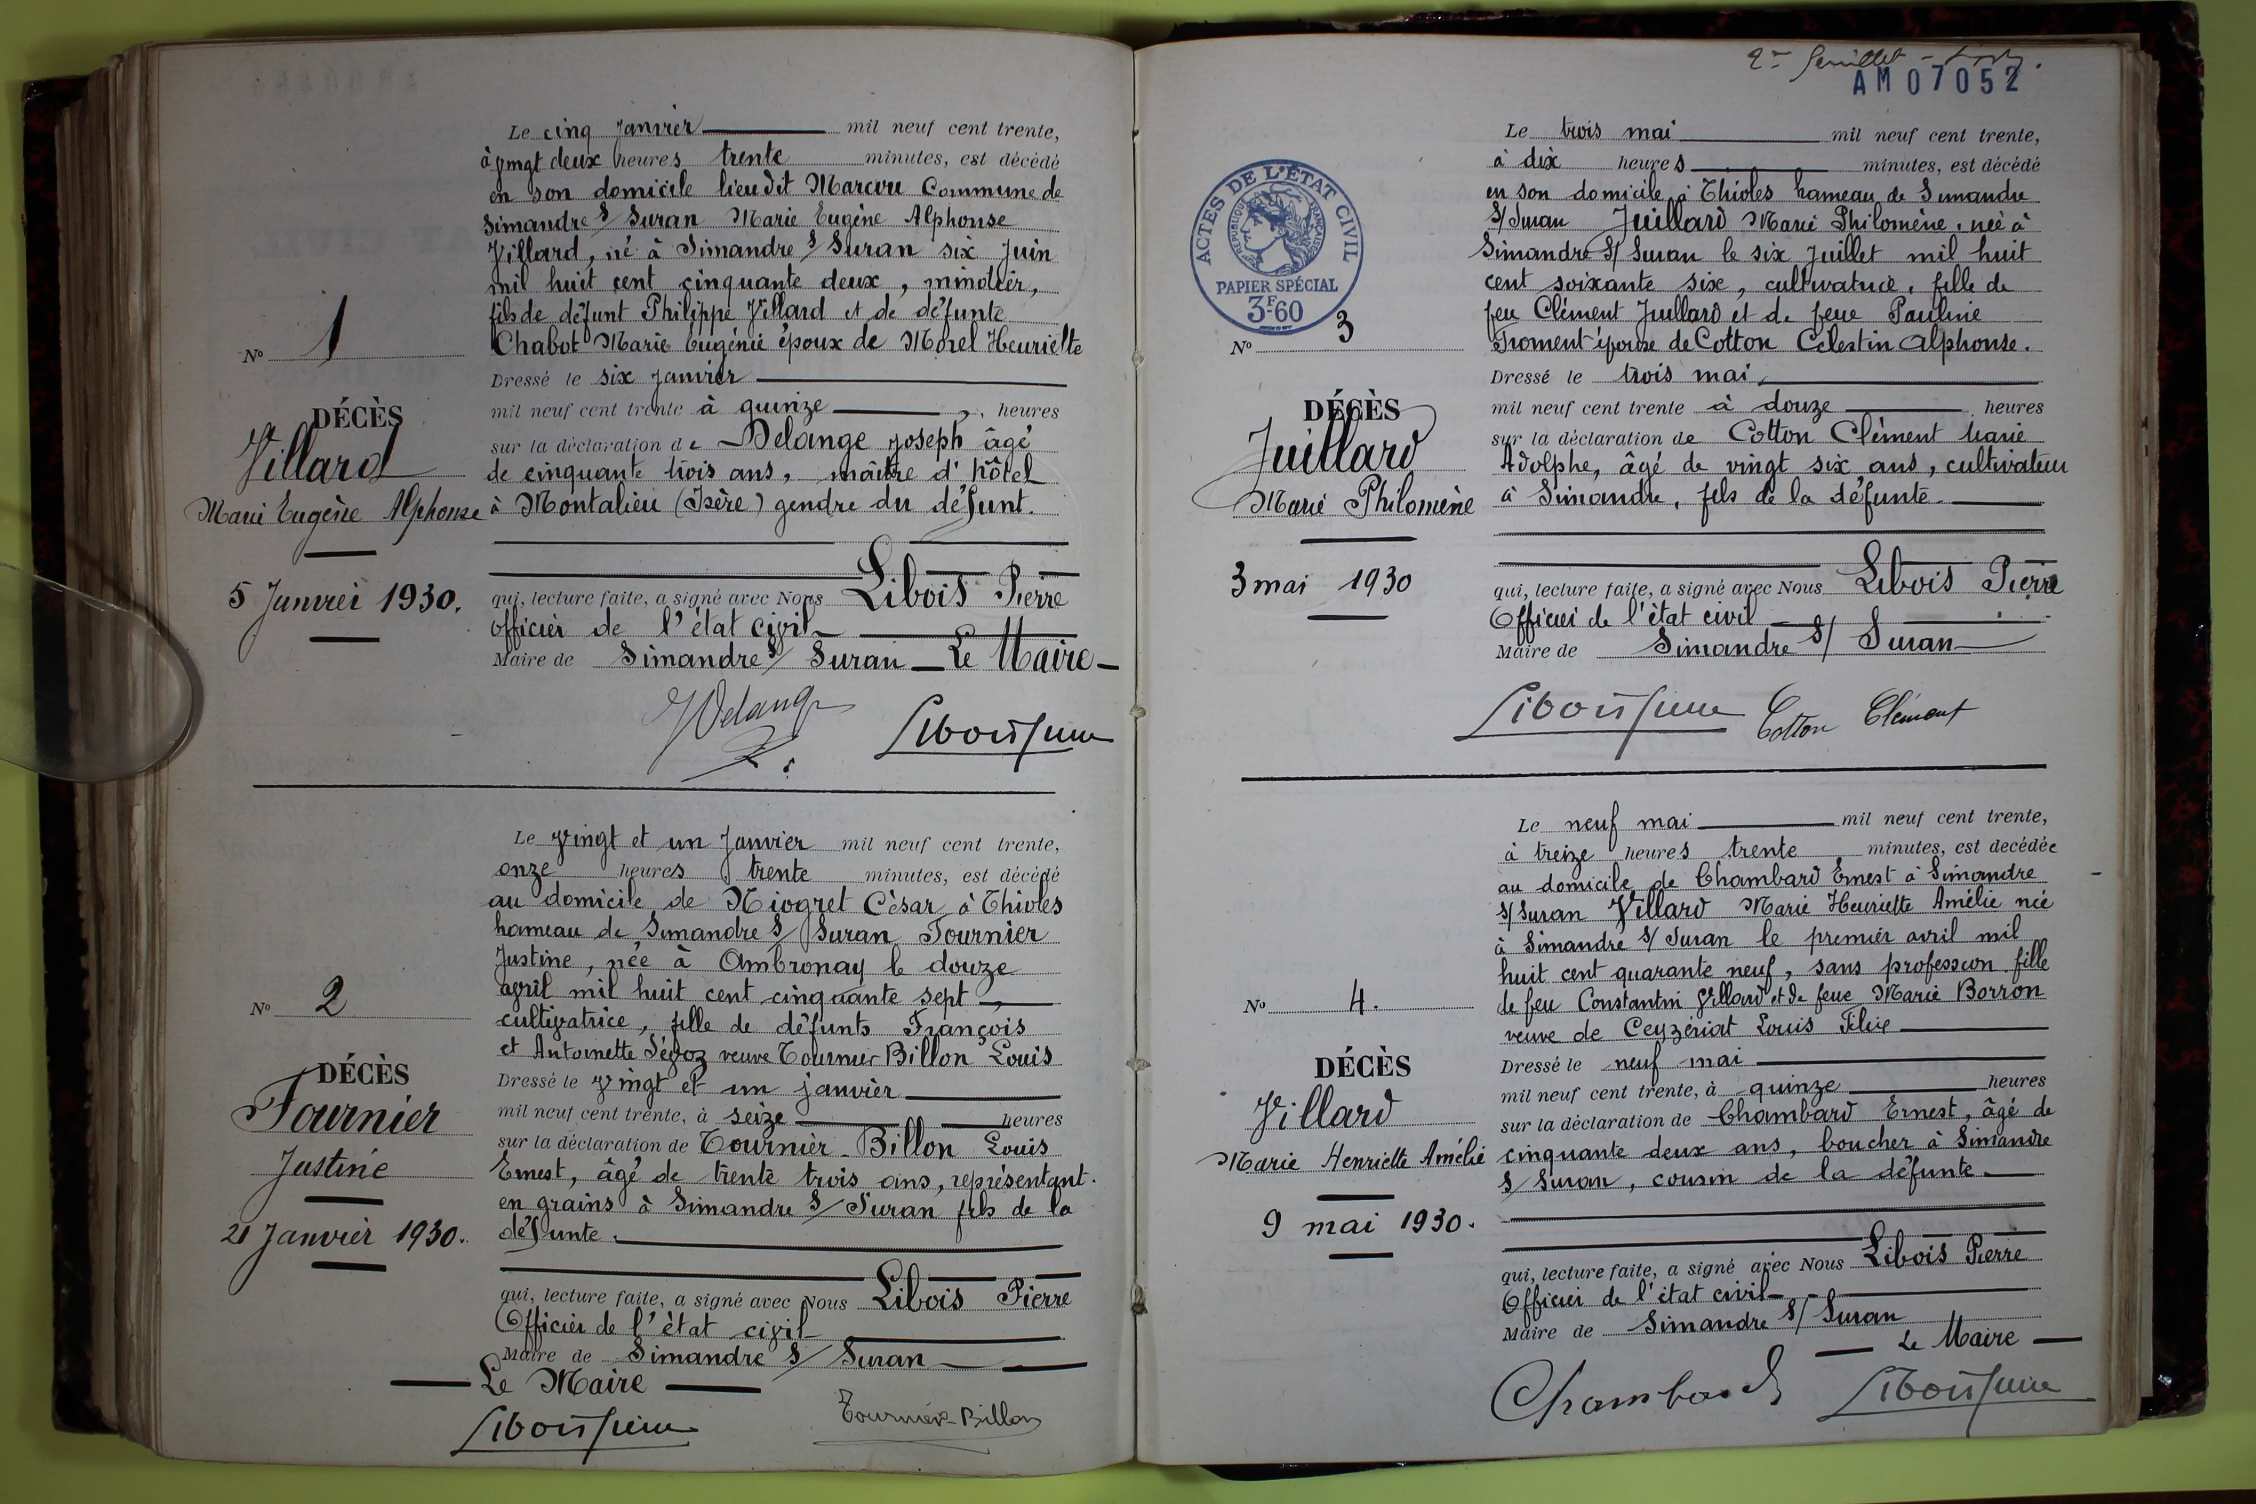 Le cinq Janvier mil neuf cent trente,
à vingt deux heures trente minutes, est décédé
en son domicile lieu dit Marcou Commune de
Simandre s/ Suran Marie Eugène Alphonse
Villard, né à Simandre s/ Suran six Juin
mil huit cent cinquante deux, minotier,
fils de défunt Philippe Villard et de défunte
Chabot Marie Eugénie époux de Morel Henriette
No 1
Dressé le six janvier
mil neuf cent trente à quinze heures
DÉCÈS
Villard
Marie Eugène Alphonse
5 Janvier 1930.
sur la déclaration de Delange Joseph âgé
de cinquante trois ans, maître d'hôtel
à Montalieu (Isère) gendre du défunt.
qui, lecture faite, a signé avec Nous Libois Pierre
officier de l'état civil
Maire de Simandre s/ Suran Le Maire
JDelange
Libois Pierre
Le vingt et un Janvier mil neuf cent trente,
onze heures trente minutes, est décédé
au domicile de Niogret César à Thioles
hameau de Simandre s/ Suran Fournier
Justine, née à Ambronay le douze
avril mil huit cent cinquante sept,
cultivatrice, fille de défunts François
et Antoinette veuve Tournier Billon Louis
No 2
DÉCÈS
Fournier
Justine
21 Janvier 1930.
Dressé le vingt et un janvier
mil neuf cent trente, à seize heures
sur la déclaration de Tournier-Billon Louis
Ernest, âgé de trente trois ans, représentant
en grains à Simandre s/ Suran fils de la
défunte.
qui, lecture faite, a signé avec Nous Libois Pierre
Officier de l'état civil
Maire de Simandre s/ Suran
Le Maire
Libois Pierre
Tournier-Billon
2me feuillet
AM07052
Le trois mai mil neuf cent trente,
à dix heures minutes, est décédé
en son domicile à Thioles hameau de Simandre
s/ Suran Juillard Marie Philomène, née à
Simandre s/ Suran le six Juillet mil huit
cent soixante six, cultivatrice, fille de
feu Clément Juillard et de feue Pauline
Froment épouse de Cotton Célestin Alphonse.
ACTES DE L'ÉTAT CIVIL
RÉPUBLIQUE FRANÇAISE
PAPIER SPÉCIAL
3F60
No 3
DÉCÈS
Juillard
Marie Philomène
3 mai 1930
Dressé le trois mai,
mil neuf cent trente à douze heures
sur la déclaration de Cotton Clément Marie
Adolphe, âgé de vingt six ans, cultivateur
à Simandre, fils de la défunte.
qui, lecture faite, a signé avec Nous Libois Pierre
Officier de l'état civil
Maire de Simandre s/ Suran
Libois Pierre
Cotton Clément
Le neuf mai mil neuf cent trente,
à treize heures trente minutes, est decédée
au domicile de Chambard Ernest à Simandre
s/ Suran Villard Marie Henriette Amélie née
à Simandre s/ Suran le premier avril mil
huit cent quarante neuf, sans profession fille
de feu Constantin Villard et de feue Marie Borron
veuve de Ceyzériat Louis Félix
No 4.
DÉCÈS
Villard
Marie Henriette Amélie
9 mai 1930.
Dressé le neuf mai
mil neuf cent trente, à quinze heures
sur la déclaration de Chambard Ernest, âgé de
cinquante deux ans, boucher à Simandre
s/ Suran, cousin de la défunte.
qui, lecture faite, a signé avec Nous Libois Pierre
Officier de l'état civil
Maire de Simandre s/ Suran
Le Maire
Chambard
Libois Pierre